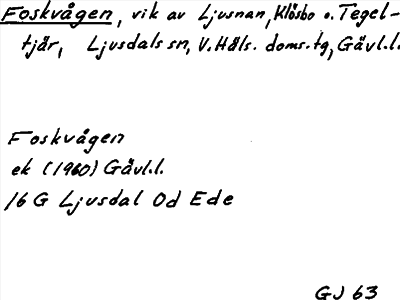 Foskvågen, vik av Ljusnan, Klösbo o. Tegel-
tjär, Ljusdals sn, V. Häls. doms. tg, Gävl.l.
Foskvågen
ek (1960) Gävl.l.
16 G Ljusdal Od Ede
GJ 63